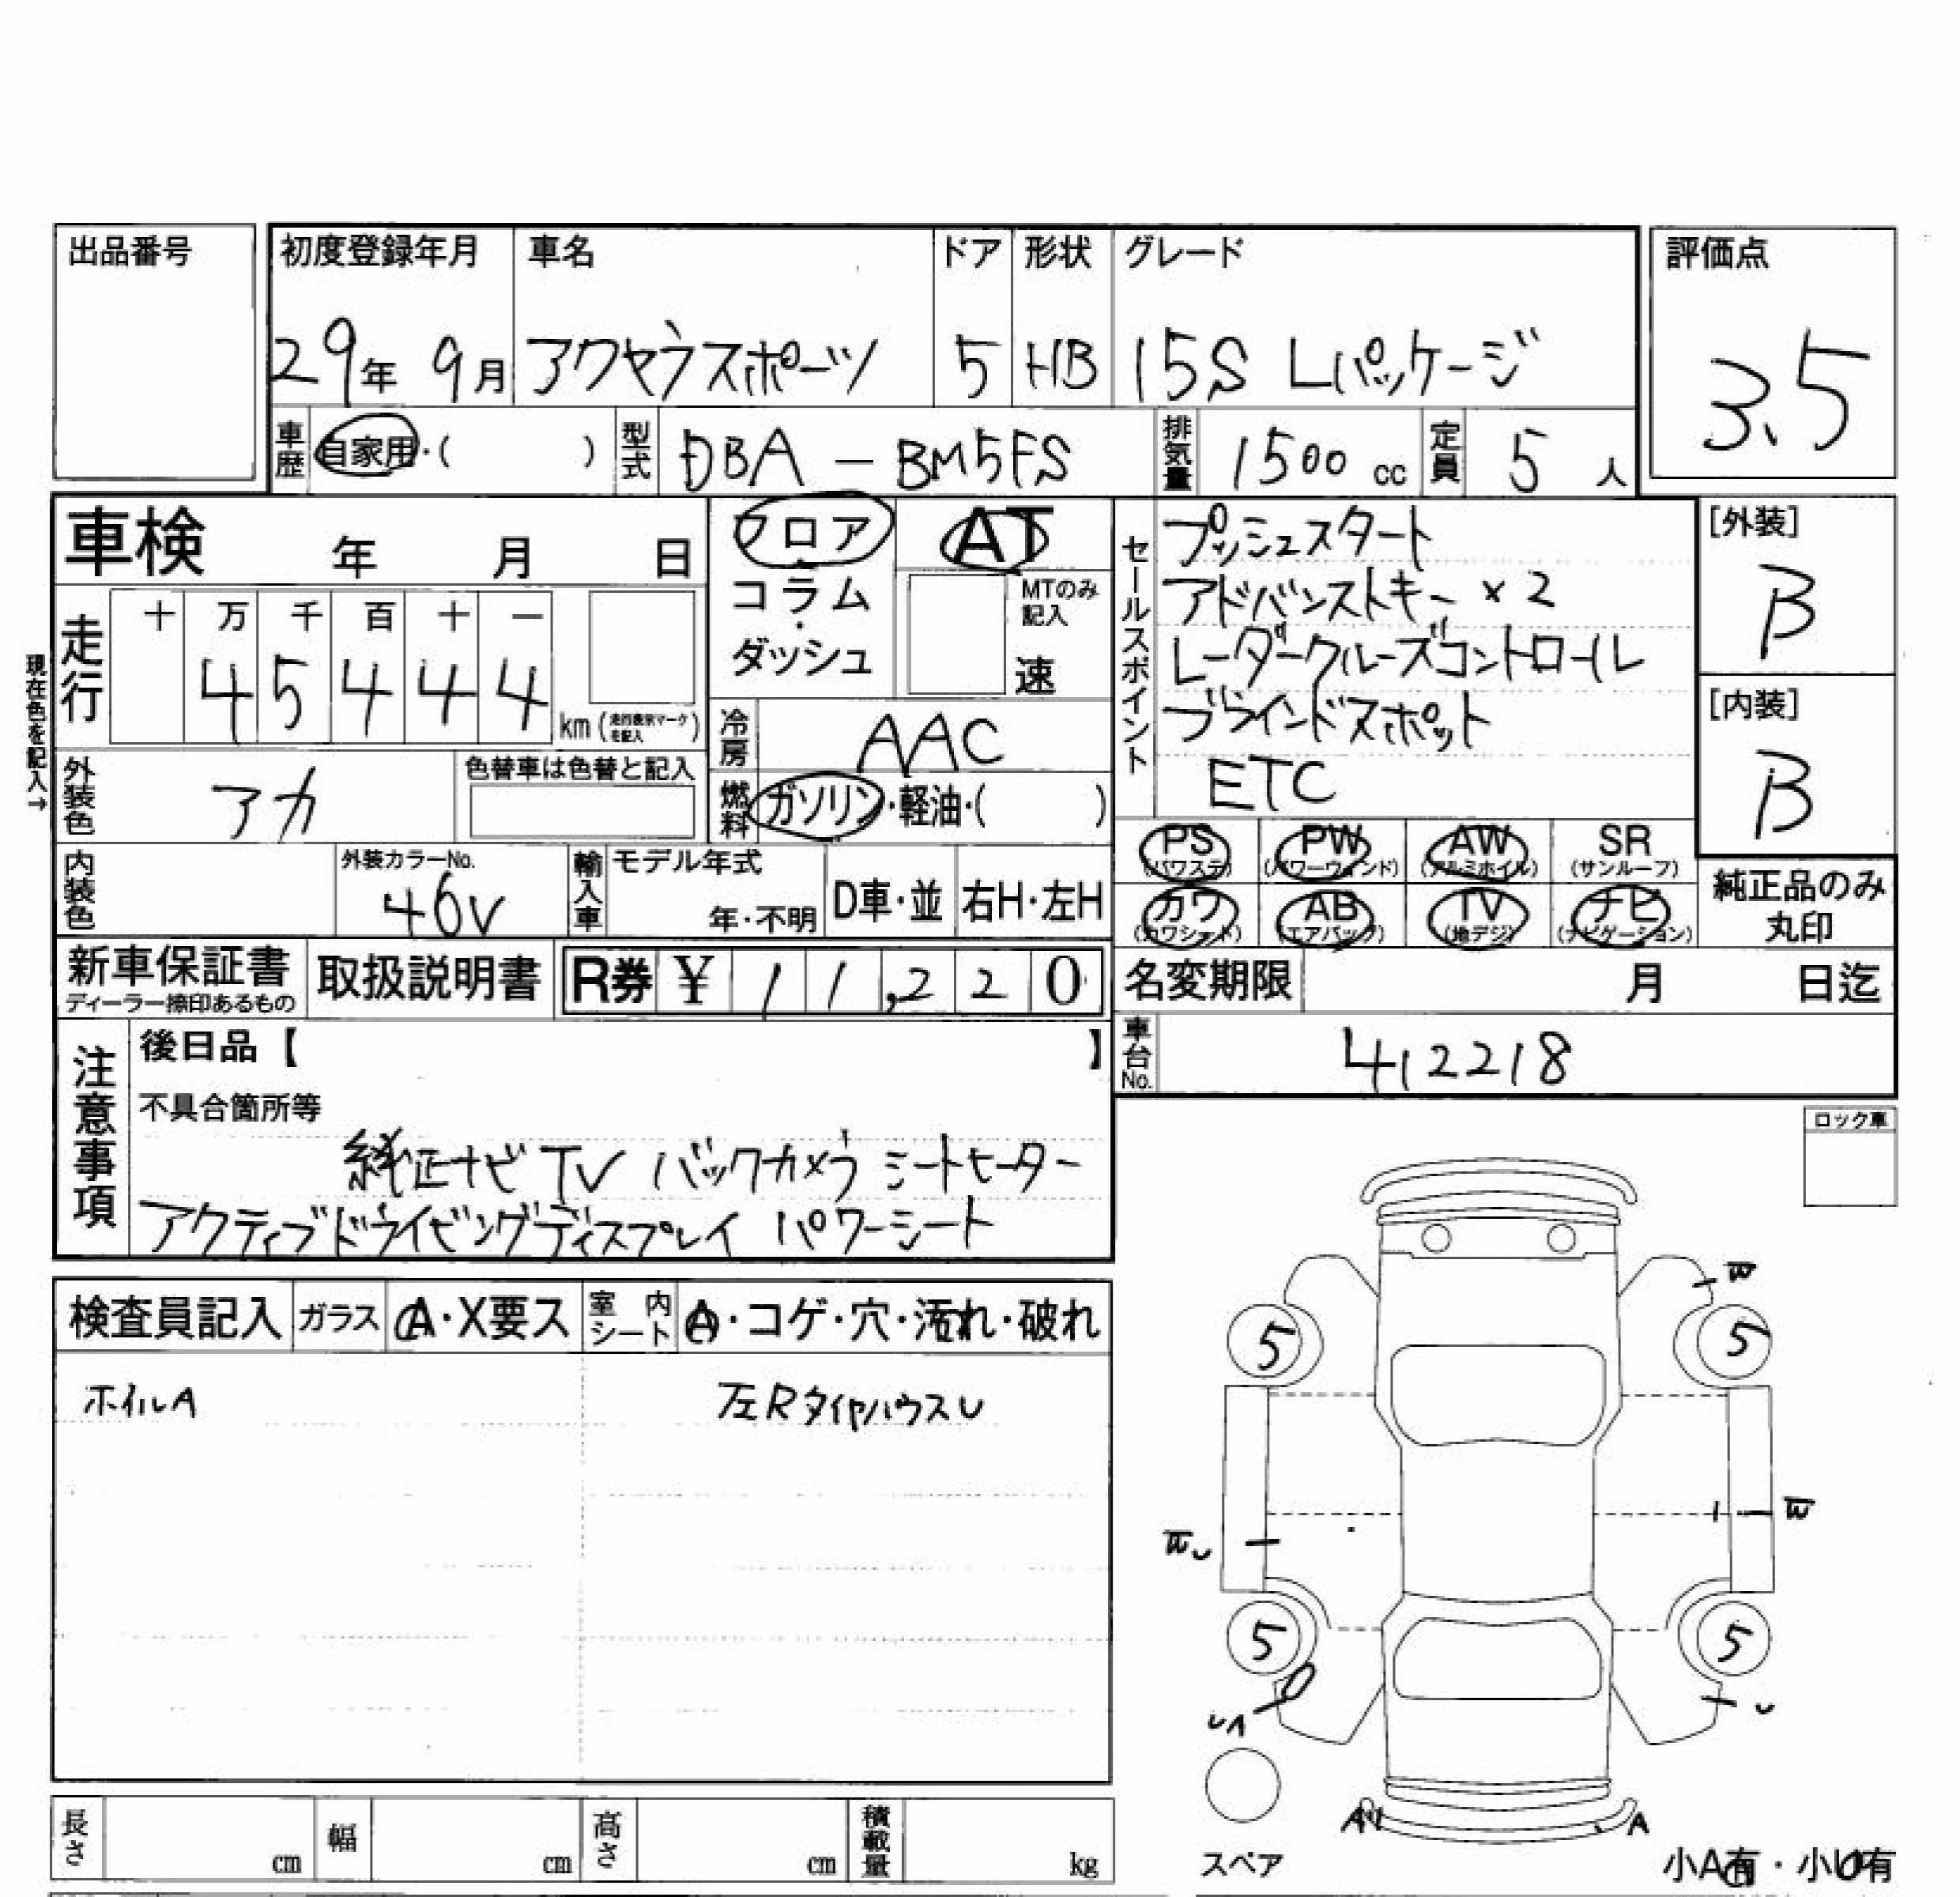 出品番号
初度登録年月 車名 ドア 形状 グレード 評価点
29年 9月 アクセラスポーツ 5 HB 15S Lパッケージ 3.5
車歴 自家用・( ) 型式 DBA - BM5FS 排気量 1500 cc 定員 5 人
車検 年 月 日
フロア・コラム・ダッシュ
AT
MTのみ記入
速
走行 十 万 千 百 十 一
4 5 4 4 4 km
現在色を記入→
外装色 アカ 色替車は色替と記入
冷房 AAC
燃料 ガソリン・軽油・( )
セールスポイント
プッシュスタート
アドバンストキー ×2
レーダークルーズコントロール
ブラインドスポット
ETC
[外装]
B
[内装]
B
内装色 外装カラーNo. 46V 輸入車 モデル年式 年・不明 D車・並 右H・左H
PS (パワステ) PW (パワーウィンド) AW (アルミホイル) SR (サンルーフ)
カワ (カワシート) AB (エアバック) TV (地デジ) ナビ (ナビゲーション)
純正品のみ丸印
新車保証書 ディーラー捺印あるもの 取扱説明書 R券 ¥ 11,220
名変期限 月 日迄
車台No. 412218
注意事項
後日品【 】
不具合箇所等
純正ナビ TV バックカメラ シートヒーター
アクティブドライビングディスプレイ パワーシート
ロック車
検査員記入 ガラス A・X要ス 室内シート A・コゲ・穴・汚れ・破れ
ホイルA 左RタイヤハウスU
W
5 5
W
WU
5 5
UA U
A A
スペア
小A有・小U有
長さ cm 幅 cm 高さ cm 積載量 kg